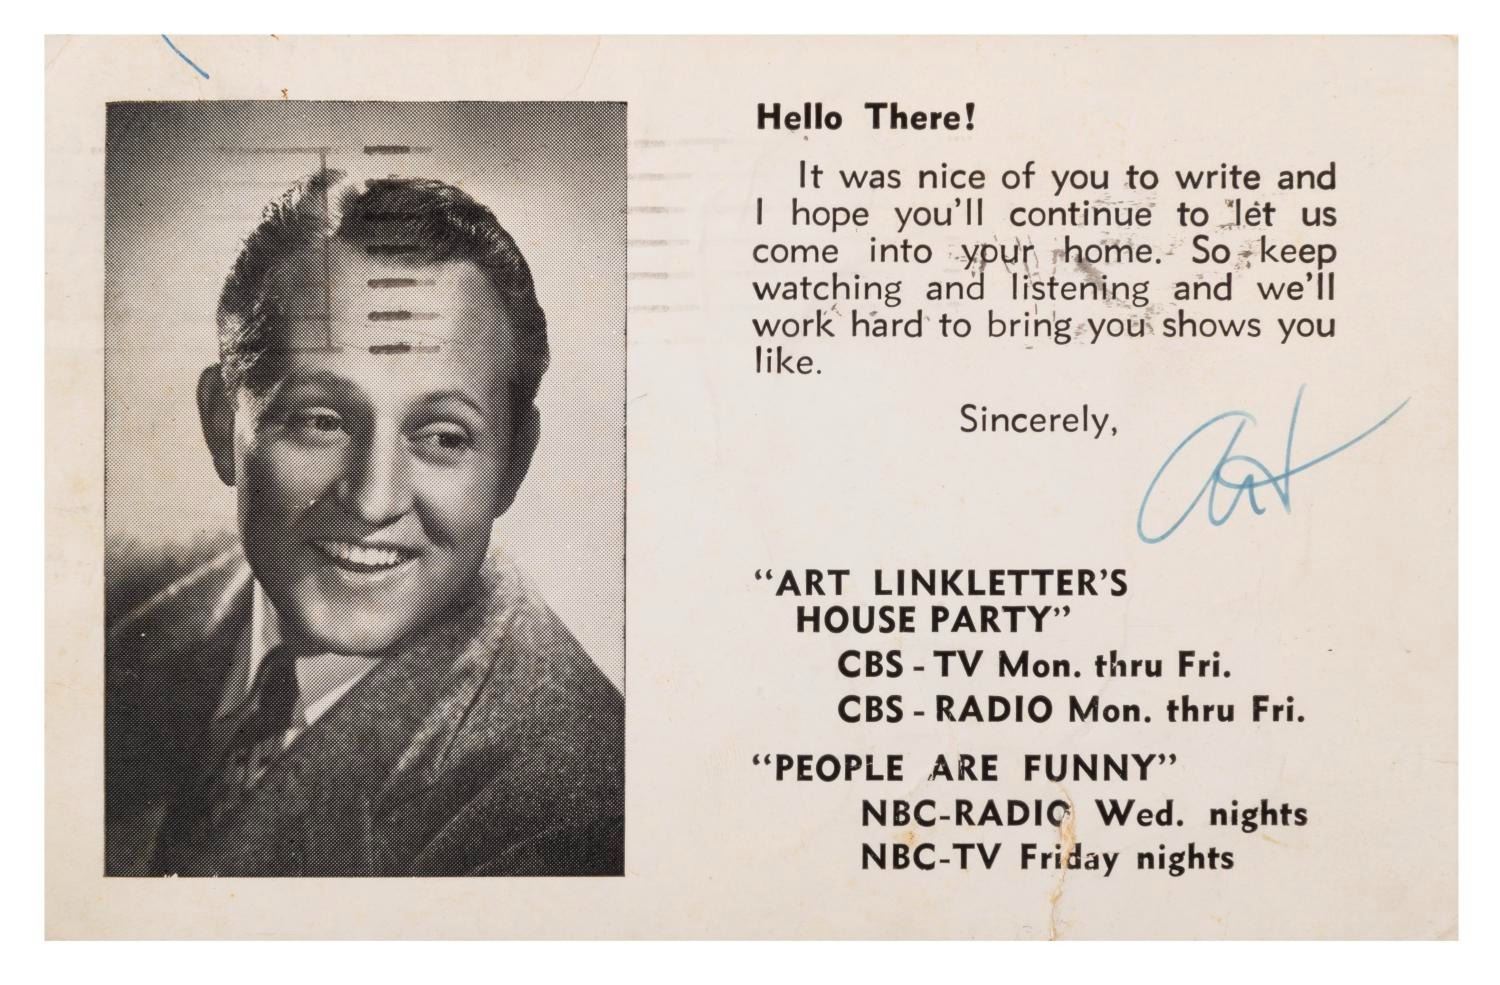 Hello There!
It was nice of you to write and
I hope you'll continue to let us
come into your home. So keep
watching and listening and we'll
work hard to bring you shows you
like.
Sincerely,
Art
"ART LINKLETTER'S
HOUSE PARTY"
CBS - TV Mon. thru Fri.
CBS - RADIO Mon. thru Fri.
"PEOPLE ARE FUNNY"
NBC-RADIO Wed. nights
NBC-TV Friday nights